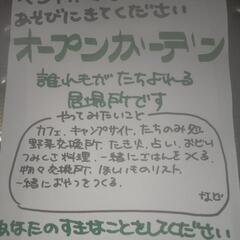 あそびにきてください
オープンガーデン
誰もがたちよれる
居場所です
やってみたいこと
カフェ、キャンプサイト、たちのみ処
野菜交換所、たき火、占い、おどり
つみくさ料理、一緒にごはんをつくる、
物々交換所、ほしいものリスト、
一緒におやつをつくる、
など
あなたのすきなことをしてください